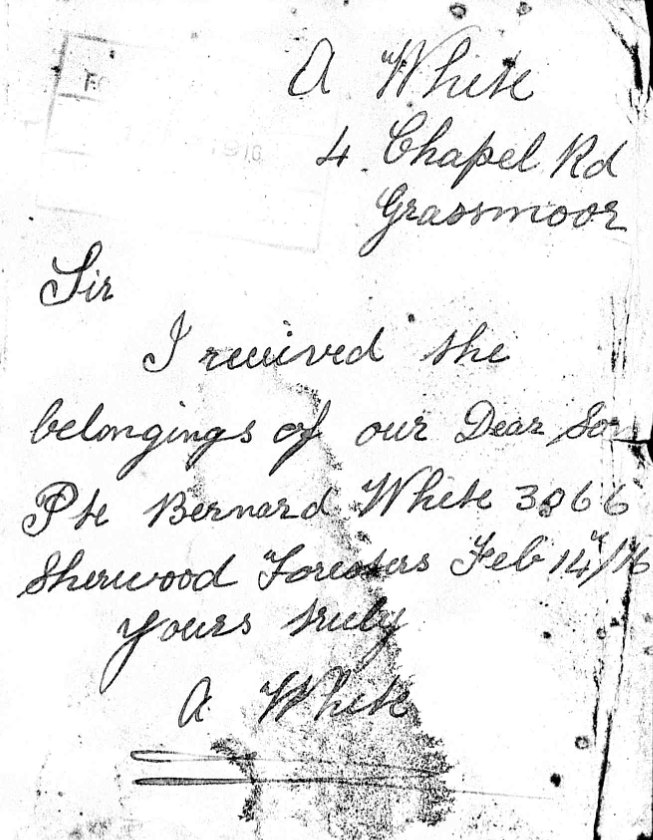 A White
4 Chapel Rd
Grassmoor
Sir
I received the
belongings of our Dear Son
Pte Bernard White 3066
Sherwood Foresters Feb 14/16
yours truly
A White